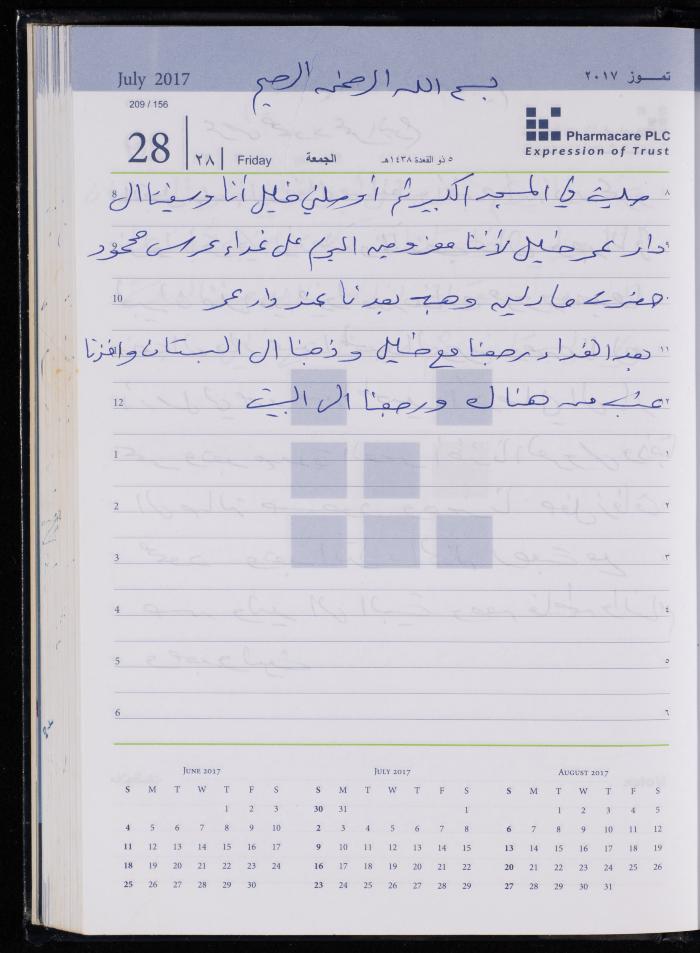 July 2017
بسم الله الرحمن الرحيم
تمــوز ٢٠١٧
209 / 156
28
٢٨
Friday
الجمعة
٥ ذو القعدة ١٤٣٨هـ
Pharmacare PLC
Expression of Trust
8 صليت في المسجد الكبير ثم أوصلني خليل أنا و الى ٨
9 دار عمر خليل لأننا معزومين اليوم على غداء عرس محمود
10 حضرت مادلين وهبه بعدنا عند دار عمر
بعد الغداء رجعنا مع خليل وذهبنا الى البستان واخذنا ١١
12 عنب من هناك ورجعنا الى البيت
1 ١
2 ٢
3 ٣
4 ٤
5 ٥
6 ٦
June 2017
S M T W T F S
1 2 3
4 5 6 7 8 9 10
11 12 13 14 15 16 17
18 19 20 21 22 23 24
25 26 27 28 29 30
July 2017
S M T W T F S
30 31 1
2 3 4 5 6 7 8
9 10 11 12 13 14 15
16 17 18 19 20 21 22
23 24 25 26 27 28 29
August 2017
S M T W T F S
1 2 3 4 5
6 7 8 9 10 11 12
13 14 15 16 17 18 19
20 21 22 23 24 25 26
27 28 29 30 31